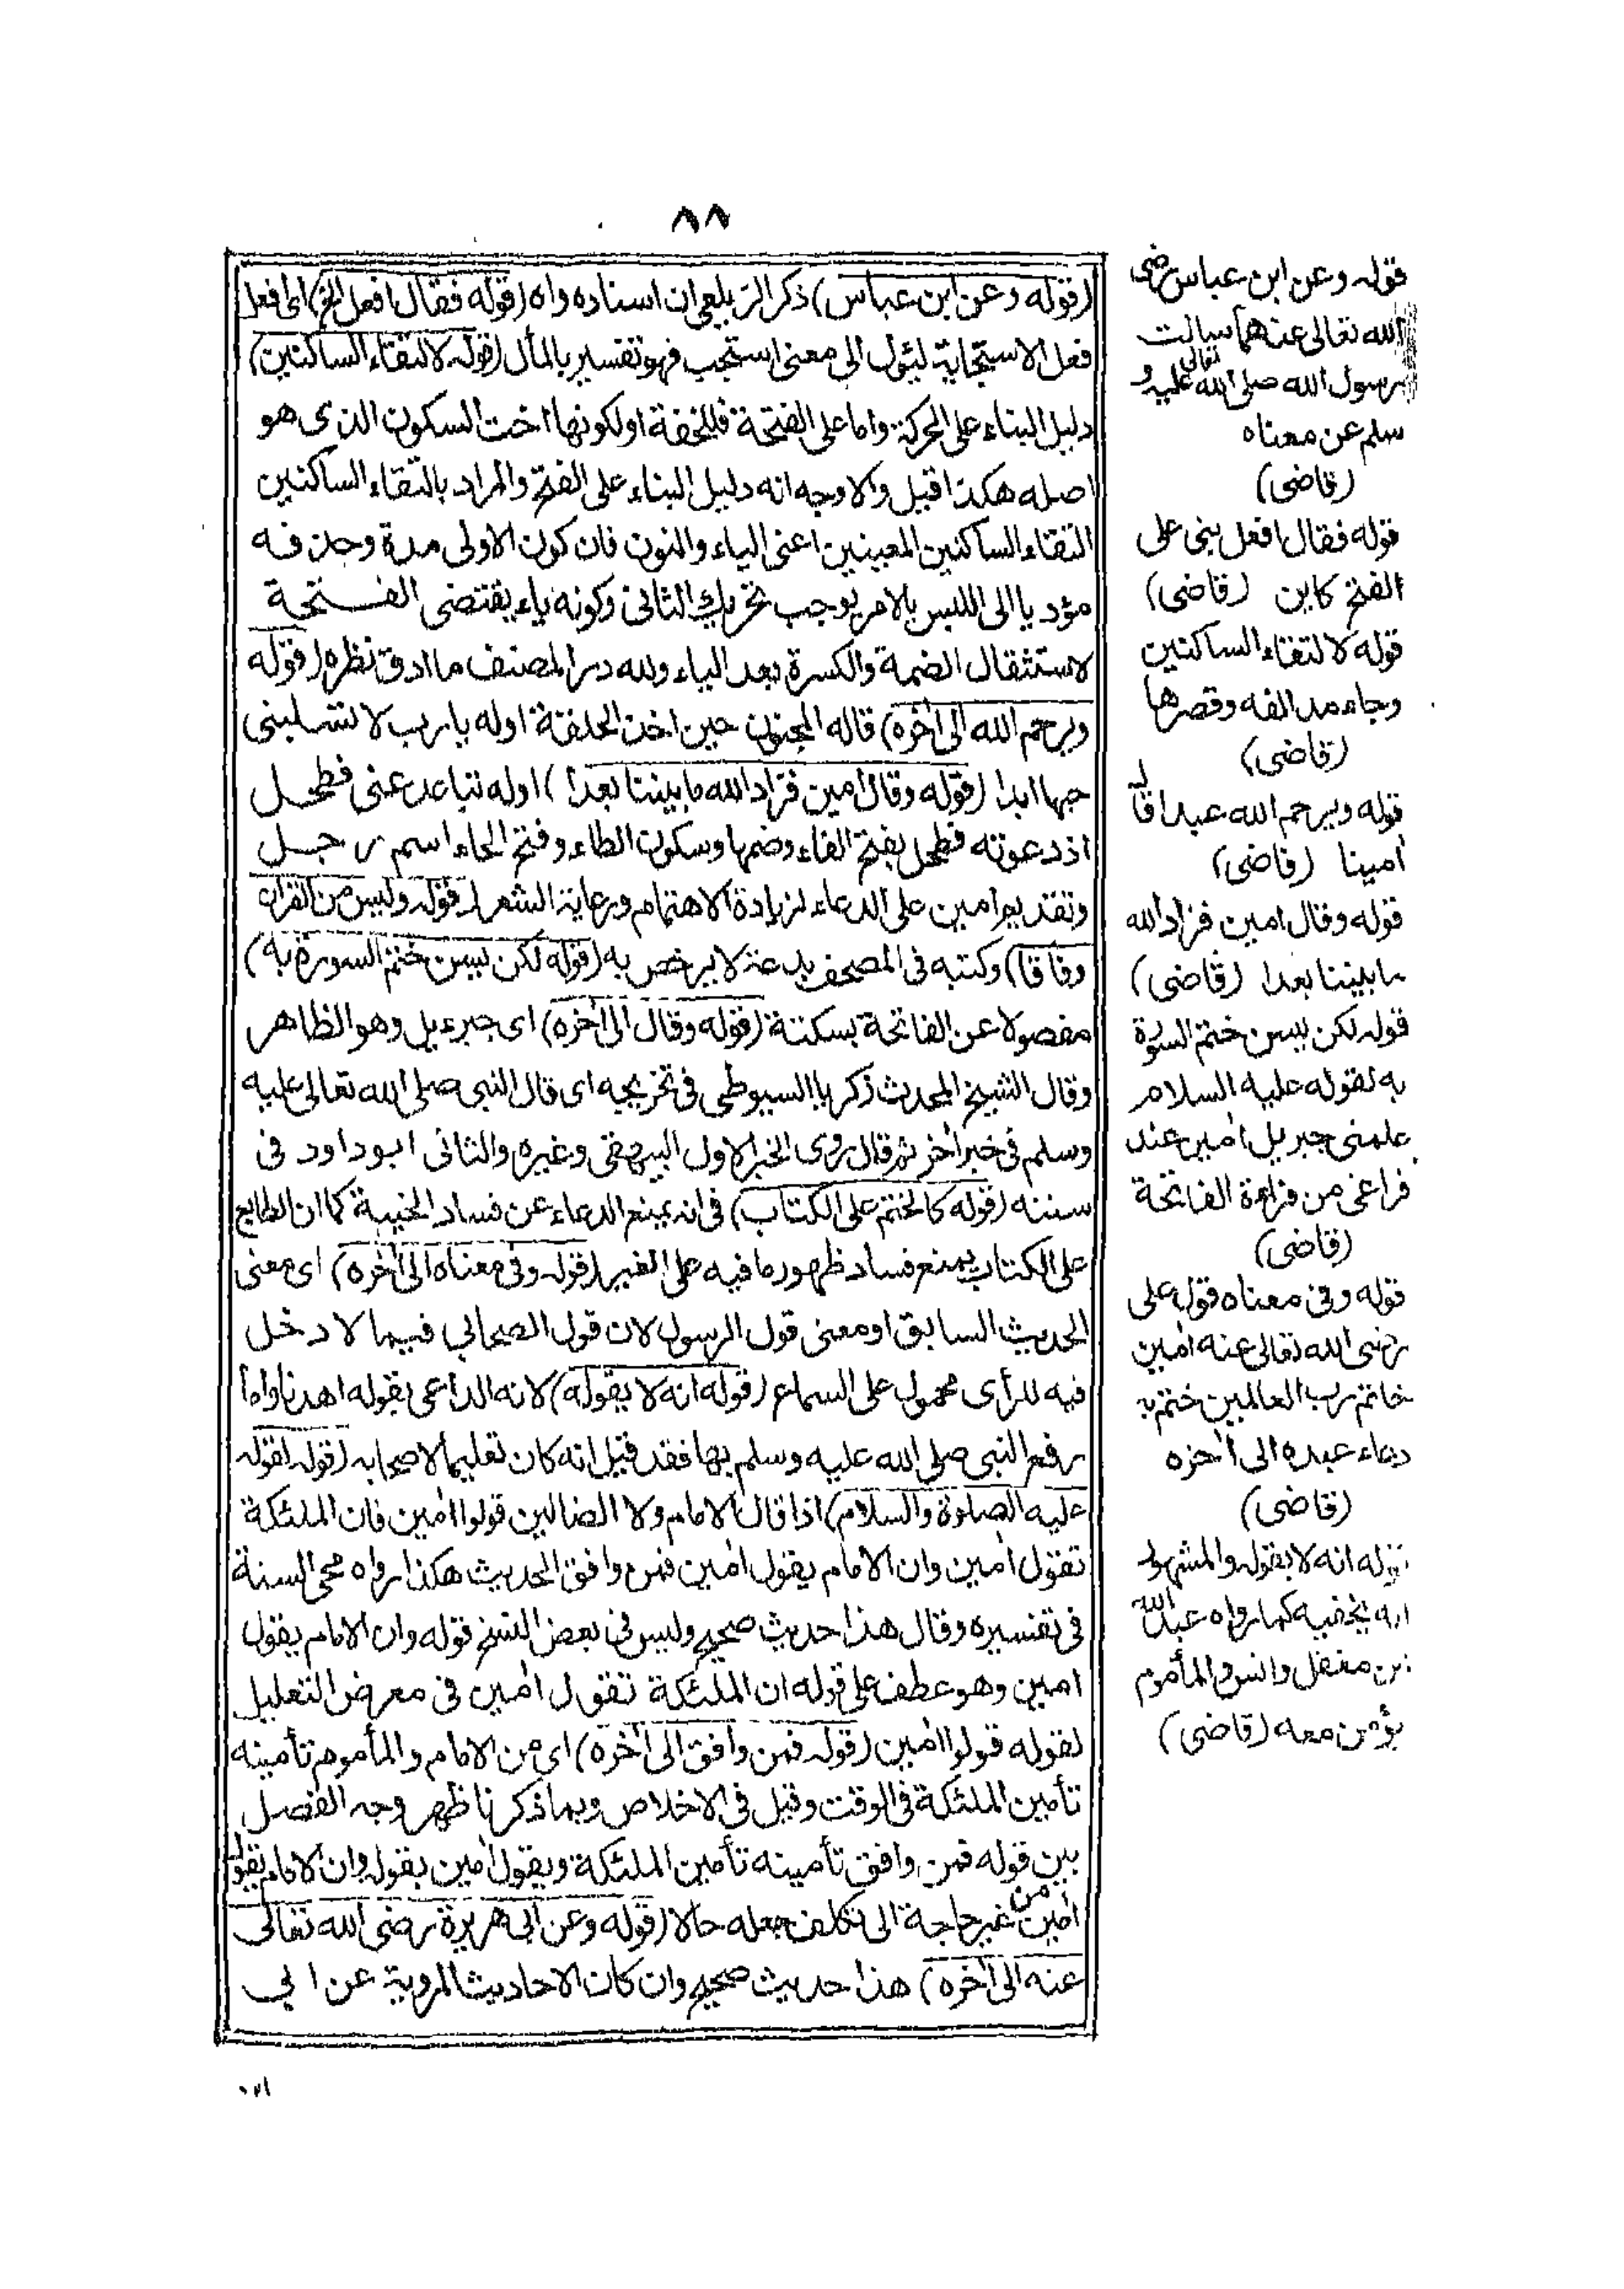 ٨٨
(قوله وعن ابن عباس) ذكر الزيلعى ان اسناده واه (قوله فقال افعل الخ) اى افعل
فعل الاستجابة ليئول الى معنى استجب فهو تفسير بالمأل (قوله لالتقاء الساكنين)
دليل البناء على الحركة واما على الفتحة فللخفة او لكونها اخت السكون الذى هو
اصله هكذا قيل والاوجه انه دليل البناء على الفتح والمراد بالتقاء الساكنين
التقاء الساكنين المعينين اعنى الياء والنون فان كون الاولى مدة وحذفه
مؤديا الى اللبس بالامر يوجب تحريك الثانى وكونه ياء يقتضى الفتحة
لاستثقال الضمة والكسرة بعد الياء ولله در المصنف ما ادق نظره (قوله
ويرحم الله الى اخره) قاله المجنون حين اخذ الحلقة اوله يا رب لا تسلبنى
حبها ابدا (قوله وقال أمين فزاد الله ما بيننا بعدا) اوله تباعد عنى فطحل
اذ دعوته فطحل بفتح الفاء وضمها وسكون الطاء وفتح الحاء اسم رجل
وتقديم امين على الدعاء لزيادة الاهتمام ورعاية الشعر (قوله وليس من القرآن
وفاقا) وكتبه فى المصحف بدعة لا يرخص به (قوله لكن ليسن ختم السورة به)
مفصولا عن الفاتحة بسكتة (قوله وقال الى اخره) اى جبرءيل وهو الظاهر
وقال الشيخ المحدث زكريا السيوطى فى تخريجه اى قال النبى صلى الله تعالى عليه
وسلم فى خبر اخر ثم قال روى الخبر الاول البيهقى وغيره والثانى ابو داود فى
سننه (قوله كالختم على الكتاب) فى انه يمنع الدعاء عن فساد الخيبة كما ان الطابع
على الكتاب يمنع فساد ظهور ما فيه على الغير (قوله وفى معناه الى اخره) اى معنى
الحديث السابق او معنى قول الرسول لان قول الصحابي فيما لا دخل
فيه للرأى محمول على السماع (قوله انه لا يقوله) لانه الداعى بقوله اهدنا واما
رفع النبى صلى الله عليه وسلم بها فقد قيل انه كان تعليما لاصحابه (قوله لقوله
عليه الصلوة والسلام) اذا قال الامام ولا الضالين قولوا امين فان الملئكة
تقول امين وان الامام يقول امين فمن وافق الحديث هكذا رواه محى السنة
فى تفسيره وقال هذا حديث صحيح وليس فى بعض النسخ قوله وان الامام يقول
امين وهو عطف على قوله ان الملئكة تقول امين فى معرض التعليل
لقوله قولوا امين (قوله فمن وافق الى اخره) اى من الامام والمأموم تأمينه
تأمين الملئكة فى الوقت وقيل فى الاخلاص وبما ذكرنا ظهر وجه الفصل
بين قوله فمن وافق تأمينه تأمين الملئكة ويقول امين بقوله وان الامام يقول
امين من غير حاجة الى تكلف جعله حالا (قوله وعن ابى هريرة رضى الله تعالى
عنه الى اخره) هذا حديث صحيح وان كان الاحاديث المروية عن ابي
قوله وعن ابن عباس رضى
الله تعالى عنهما سالت
رسول الله صلى الله تعالى عليه و
سلم عن معناه
(قاضى)
قوله فقال افعل بنى على
الفتح كاين (قاضى)
قوله لالتقاء الساكنين
وجاء مد الفه وقصرها
(قاضى)
قوله ويرحم الله عبدا قال
أمينا (قاضى)
قوله وقال امين فزاد الله
ما بيننا بعدا (قاضى)
قوله لكن ليسن ختم السورة
به لقوله عليه السلام
علمنى جبريل امين عند
فراغى من قراءة الفاتحة
(قاضى)
قوله وفى معناه قول على
رضى الله تعالى عنه امين
خاتم رب العالمين ختم به
دعاء عبده الى اخره
(قاضى)
قوله انه لا يقوله والمشهور
انه يخفيه كما رواه عبد الله
بن مغفل وانس والمأموم
يؤمن معه (قاضى)